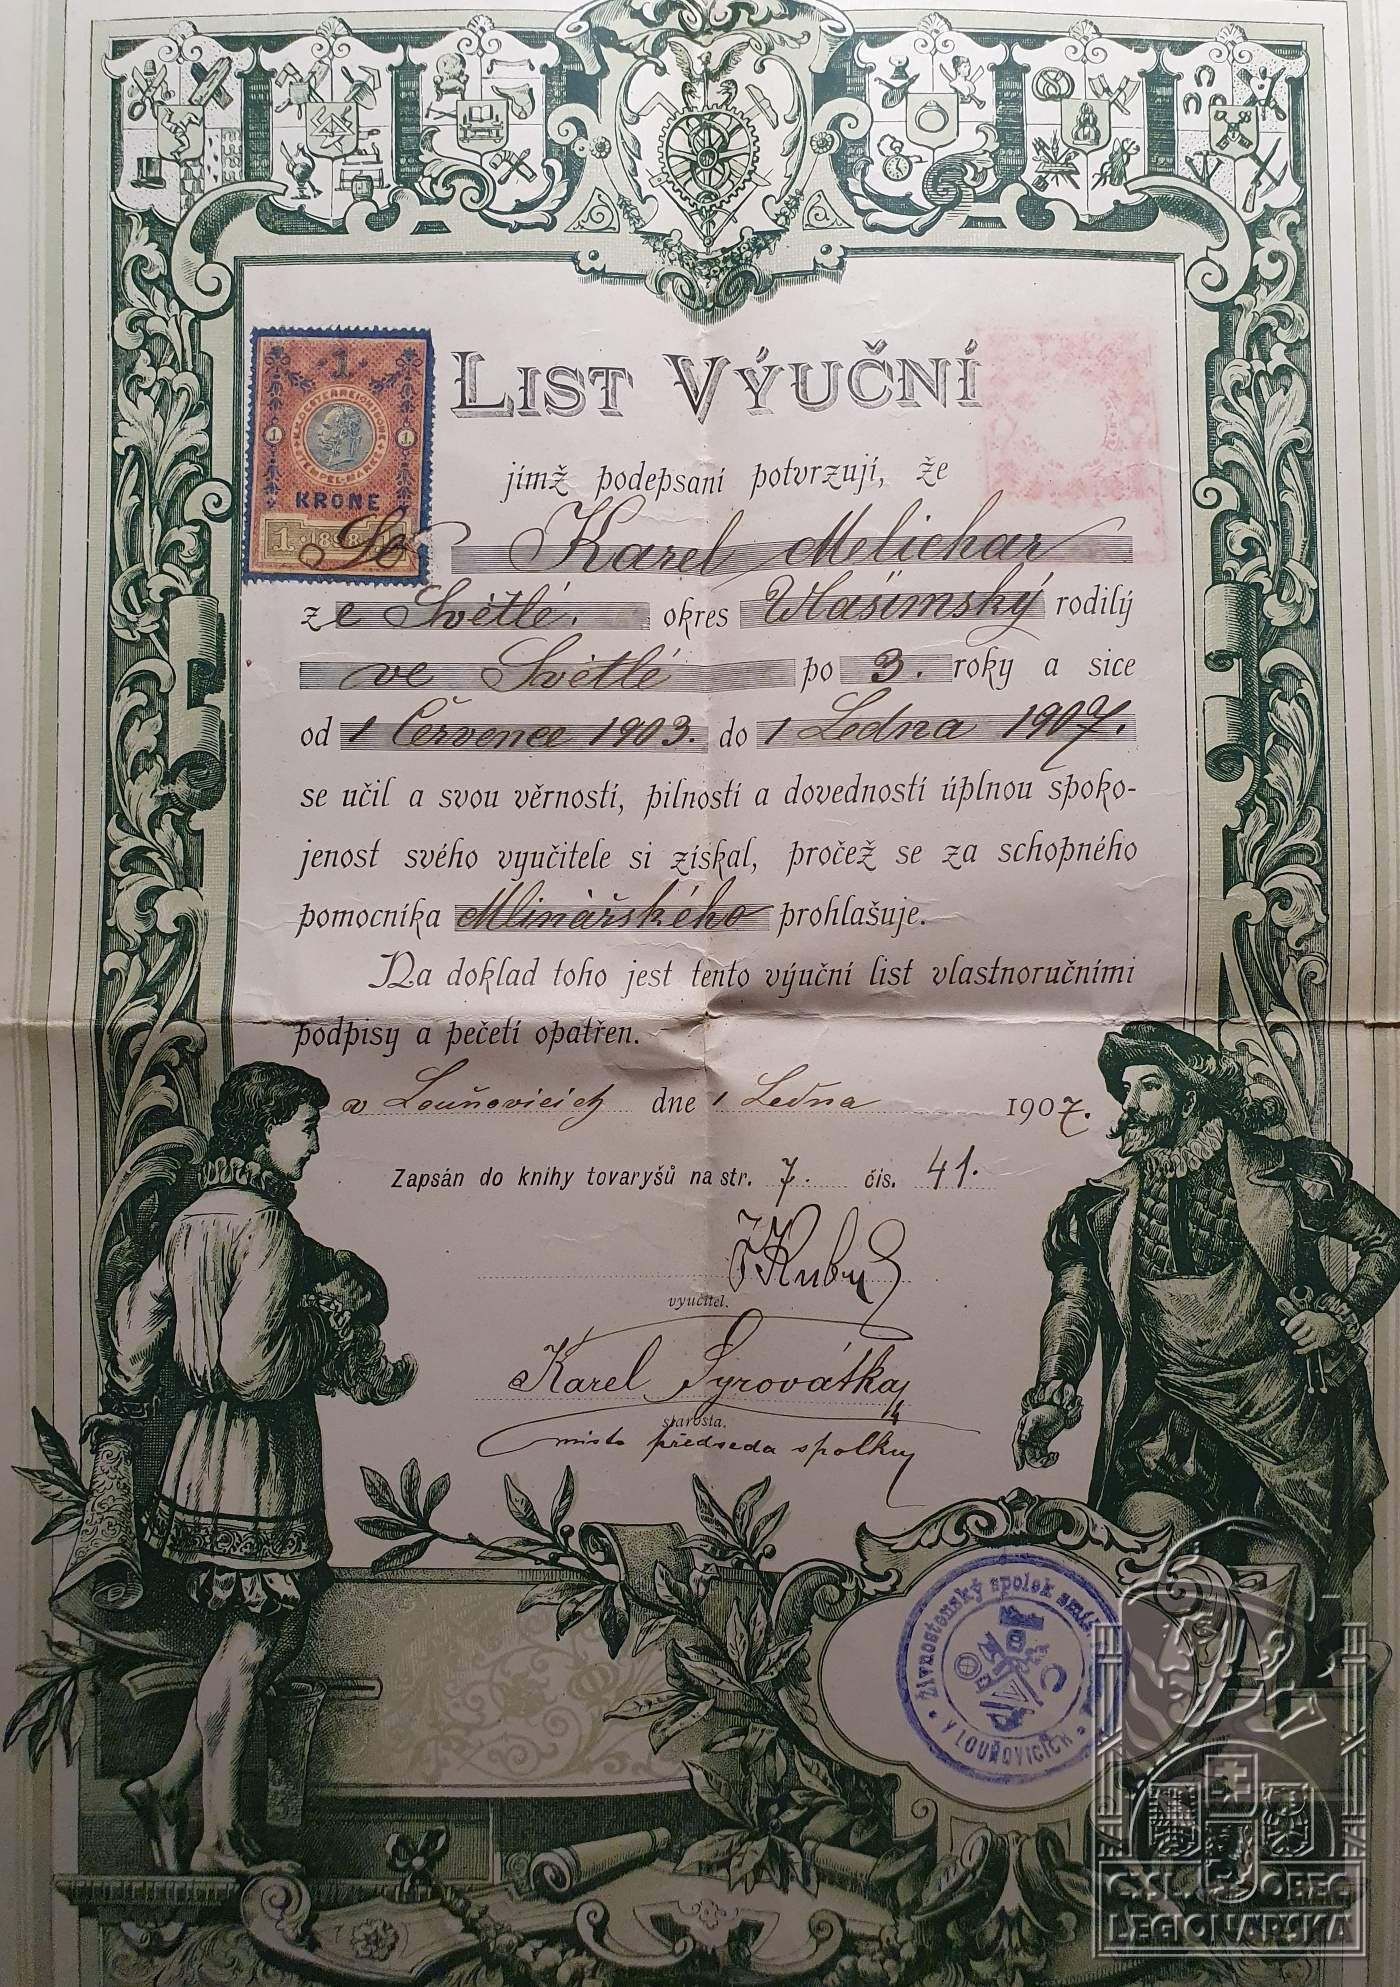 1
K.K. OESTERREICHISCHE
STEMPEL-MARKE
1 1
KRONE
1 · 1898 · 1
LIST VÝUČNÍ
jímž podepsaní potvrzují, že
Karel Melichar
ze Světlé. okres Vlašimský rodilý
ve Světlé po 3. roky a sice
od 1 Července 1903. do 1 Ledna 1907.
se učil a svou věrností, pilností a dovedností úplnou spoko-
jenost svého vyučitele si získal, pročež se za schopného
pomocníka Mlinářského prohlašuje.
Na doklad toho jest tento výuční list vlastnoručními
podpisy a pečetí opatřen.
v Louňovicích dne 1 Ledna 1907.
Zapsán do knihy tovaryšů na str. 7. čís. 41.
vyučitel.
Karel Syrovátka
starosta.
místo předseda spolku
Živnostenský spolek
V LOUŇOVICÍCH
Č.SL. OBEC
LEGIONÁŘSKÁ